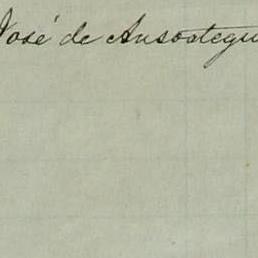 José de Ansostegu